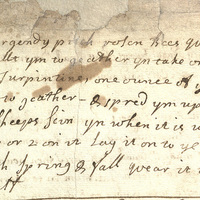 rgendy pitch rosen bees
ym to geather yn take on
Turpintines one ounce of
to geather - & spred ym up
sheeps skin yn when it is
or 2 on it Lay it on to ye
spring & fall wear it